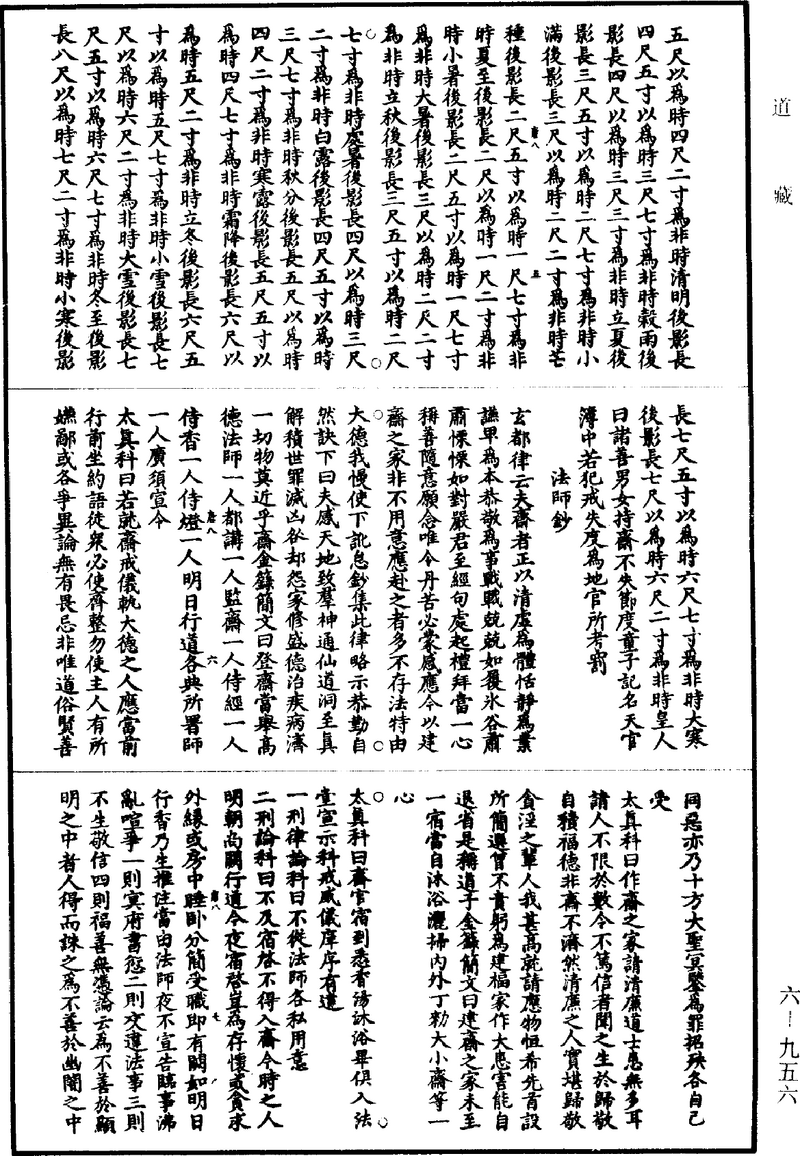 道藏
五尺以為時四尺二寸為非時清明後影長
四尺五寸以為時三尺七寸為非時穀雨後
影長四尺以為時三尺三寸為非時立夏後
影長三尺五寸以為時二尺七寸為非時小
滿後影長三尺以為時二尺二寸為非時芒
種後影長二尺五寸以為時一尺七寸為非
時夏至後影長二尺以為時一尺二寸為非
時小暑後影長二尺五寸以為時一尺七寸
為非時大暑後影長三尺以為時二尺二寸
為非時立秋後影長三尺五寸以為時二尺
七寸為非時處暑後影長四尺以為時三尺
二寸為非時白露後影長四尺五寸以為時
三尺七寸為非時秋分後影長五尺以為時
四尺二寸為非時寒露後影長五尺五寸以
為時四尺七寸為非時霜降後影長六尺以
為時五尺二寸為非時立冬後影長六尺五
寸以為時五尺七寸為非時小雪後影長七
尺以為時六尺二寸為非時大雪後影長七
尺五寸以為時六尺七寸為非時冬至後影
長八尺以為時七尺二寸為非時小寒後影
長七尺五寸以為時六尺七寸為非時大寒
後影長七尺以為時六尺二寸為非時皇人
曰諸善男女持齋不失節度童子記名天官
簿中若犯戒失度為地官所考罰
法師鈔
玄都律云夫齋者正以清虛為體恬靜為業
謙卑為本恭敬為事戰戰兢兢如履冰谷肅
肅慄慄如對嚴君至經句處起禮拜當一心
稱善隨意願念唯令丹苦必蒙感應今以建
齋之家非不用意應赴之者多不存法特由
大德我慢使下訛息鈔集此律略示恭勤自
然訣下曰夫感天地致羣神通仙道洞至真
解積世罪滅凶咎却怨家修盛德治疾病濟
一切物莫近乎齋金籙簡文曰登齋當舉高
德法師一人都講一人監齋一人侍經一人
侍香一人侍燈一人明日行道各典所署師
一人廣須宣令
太真科曰若就齋戒儀軌大德之人應當前
行前坐約語徒衆必使齊整勿使主人有所
嫌鄙或各爭異論無有畏忌非唯道俗賢善
同惡亦乃十方大聖冥鑒為罪招殃各自已
受
太真科曰作齋之家請清廉道士患無多耳
請人不限於數今不篤信者聞之生於歸敬
自積福德非齋不濟然清廉之人實堪歸敬
貪淫之輩人我甚高就請應物恒希先首設
所簡選曾不責躬為建福家作大患害能自
退省是稱道子金籙簡文曰建齋之家未至
一宿當自沐浴灑掃內外丁勑大小齋等一
心
太真科曰齋官宿到悉香湯沐浴畢俱入法
堂宣示科戒威儀庠序有違
一刑律論科曰不從法師各私用意
二刑論科曰不及宿啓不得入齋今時之人
明朝尚闕行道今夜宿啓豈為存懷或貪求
外緣或房中睡卧分簡受職即有闕如明日
行香乃生推注當由法師夜不宣告臨事沸
亂喧爭一則冥府書愆二則交違法事三則
不生敬信四則福善無憑論云為不善於顯
明之中者人得而誅之為不善於幽闇之中
六－九五六